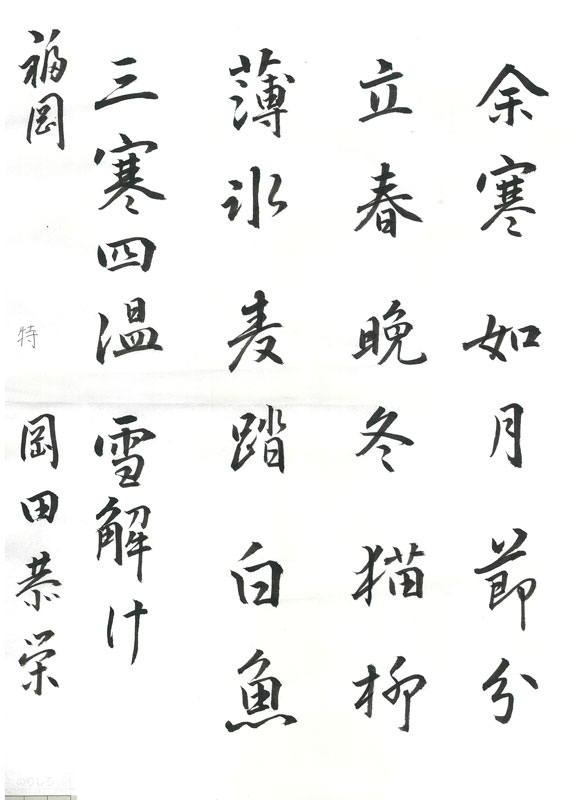 余寒 如月 節分
立春 晩冬 猫柳
薄氷 麦踏 白魚
三寒四温 雪解け
福岡 特 岡田恭栄
のりしろ